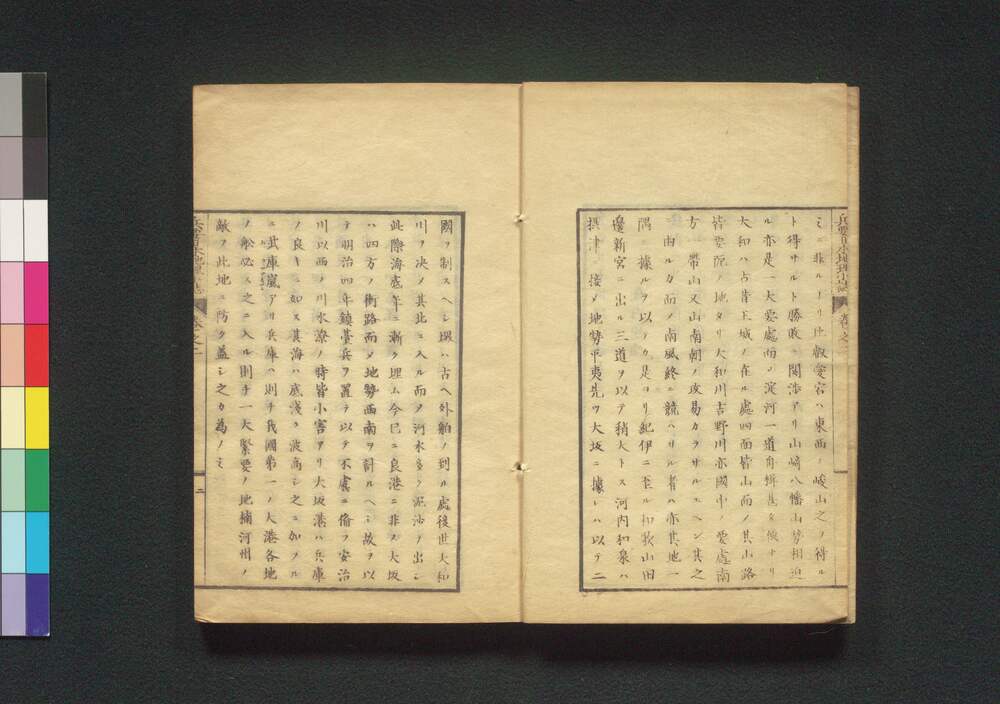 ミニ非ルナリ比叡愛宕ハ東西ノ峻山之ノ得ル
ト得サルト勝敗ニ関渉アリ山崎八幡山勢相迫
ル亦是一大要處而〆淀河一道舟楫甚タ便ナリ
大和ハ占昔王城ノ在ル處四面皆山而ノ其山路
皆要阨ノ地タリ大和川吉野川亦國中ノ要處南
方一帶山又山南朝ノ攻易カラサルユヘン其之
ニ由ルカ而ノ南風終ニ競ハサル者ハ亦其地一
隅ニ據ルヲ以テノ
是ヨリ紀伊ニ至ル和歌山田
邊新宮ニ出ル三道ヲ以テ稍大トス河内和泉ハ
摂津ニ接〆地勢平夷先ツ大坂ニ據レハ以テ二
國ヲ制スヘシ堺ハ古ヘ外舶ノ到ル處後世大和
川ヲ决〆其北ニ入ル而〆河水多ク泥沙ヲ出シ
此際海底年ニ漸ク埋ム今巳ニ良港ニ非ス大坂
ハ四方ノ衝路而〆地勢西南ヲ討ルヘシ故ヲ以
テ明治四年鎮臺兵ヲ置テ以テ不虞ニ備フ安治
川以西ノ川水潦ノ時皆小害アリ大坂港ハ兵庫
ノ良キニ如ス其海ハ底淺ク波高シ之ニ加フル
ニ武庫嵐アリ兵庫ハ則チ我國第一ノ大港各地
ノ船必ス之ニ入ル則チ一大緊要ノ地楠河州ノ
敵ヲ此地ニ防ク蓋シ之カ為ノミ
兵要日本地理小誌
巻之二
二